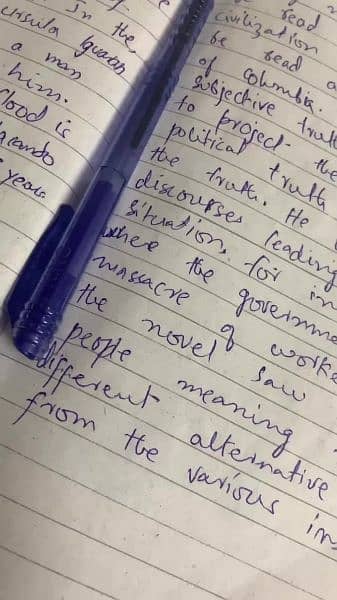 In the
Ursula Iguaran
a man
him.
flood is
Macondo
years
read
civilization
be read a
of Columbia.
subjective trut
to project the
political truth
the truth. He
discourses leading
situation, for in
where the governme
massacre of worke
the novel saw
people meaning
different alternative
from the various in